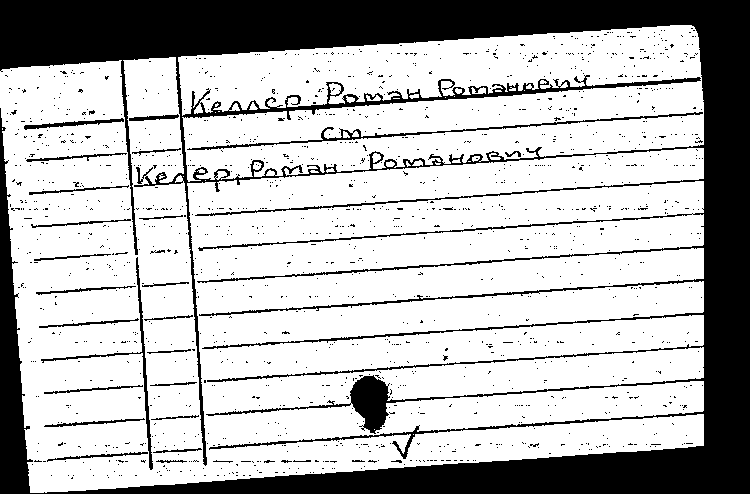 Келлер, Роман Романович
см.
Келер, Роман Романович